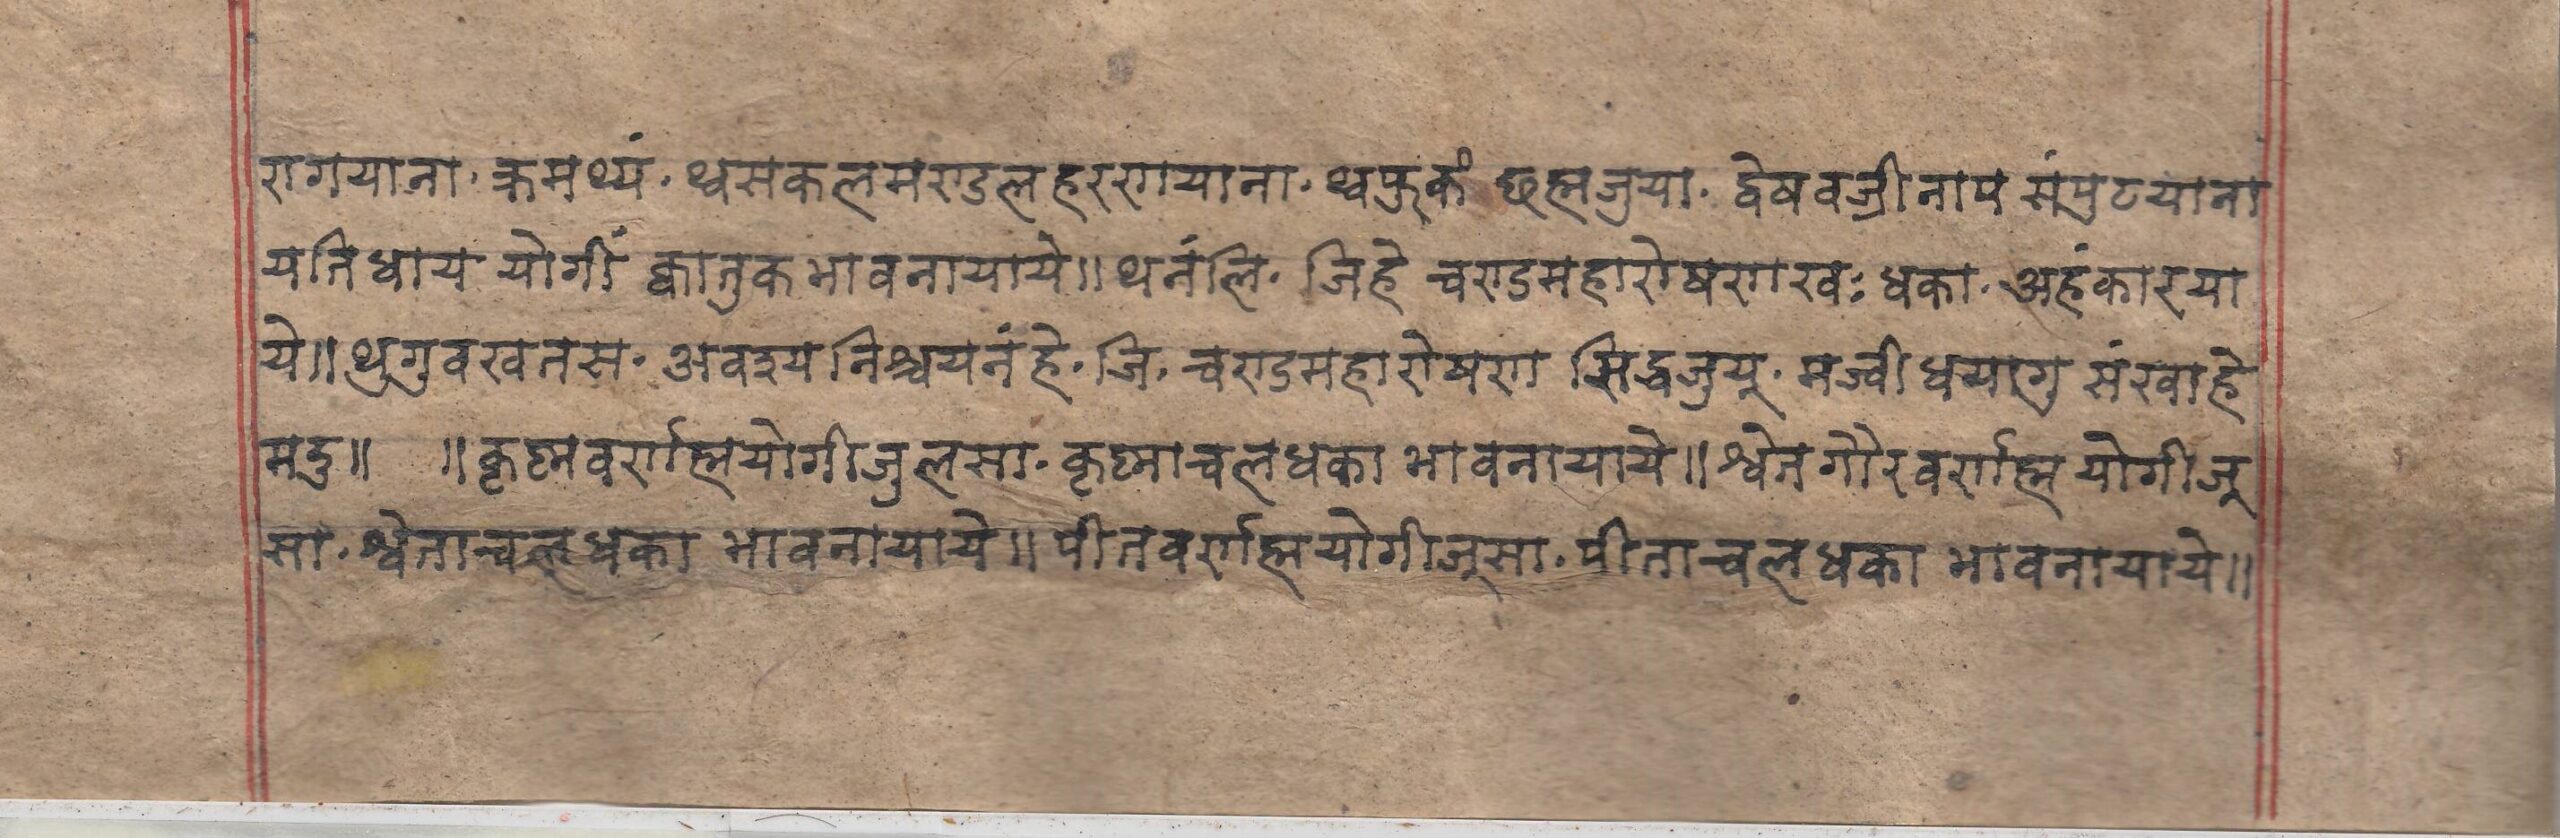 रागयाना॰ क्रमथ्यं॰ थ्वसकलमण्डलहरणयाना॰ थ्वफुकं छह्मजुया॰ द्वेषवज्रीनाप संपुटयाना
यतिधाय योगीं क्वातुक भावनायाये॥ थनंलि॰ जिहे चण्डमहारोषण खवः धका॰ अहंकारया
ये॥ थुगुवखतस॰ अवश्य निश्चयनंहे॰ जि॰ चण्डमहारोषण सिद्धजुयू॰ मज्वी धयागु संखाहे
मदु॥ ॥ कृष्णवर्णह्मयोगीजुलसा॰ कृष्णाचलधका भावनायाये॥ श्वेतगौरवर्णह्म योगीजू
सा॰ श्वेताचलधका भावनायाये॥ पीतवर्णह्मयोगीजूसा॰ पीताचलधका भावनायाये॥